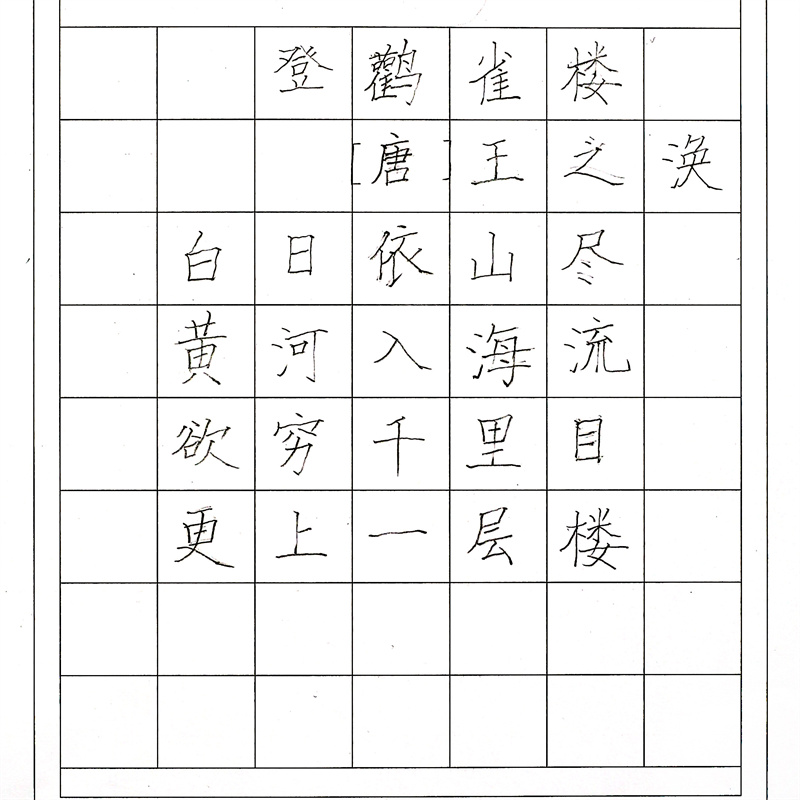 登鹳雀楼
[唐]王之涣
白日依山尽
黄河入海流
欲穷千里目
更上一层楼